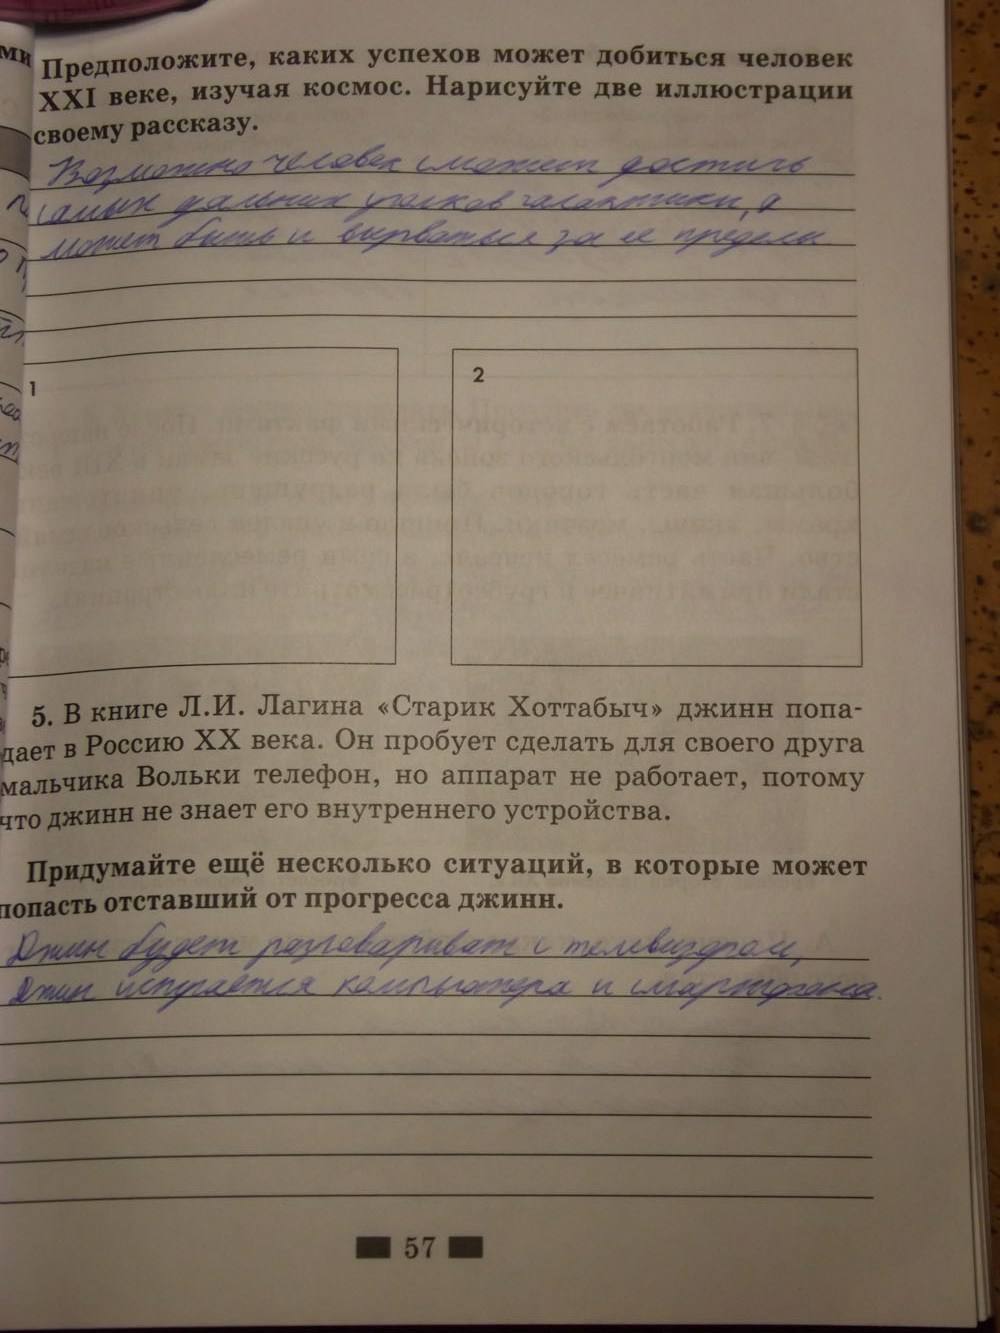 Предположите, каких успехов может добиться человек
XXI веке, изучая космос. Нарисуйте две иллюстрации
своему рассказу.
Возможно человек сможет достичь
самых дальних уголков галактики, а
может быть и вырваться за ее пределы
1
2
5. В книге Л.И. Лагина «Старик Хоттабыч» джинн попа-
дает в Россию XX века. Он пробует сделать для своего друга
мальчика Вольки телефон, но аппарат не работает, потому
что джинн не знает его внутреннего устройства.
Придумайте ещё несколько ситуаций, в которые может
попасть отставший от прогресса джинн.
Джин будет разговариват с телевизором,
Джин испугается компьютера и смартфона.
57